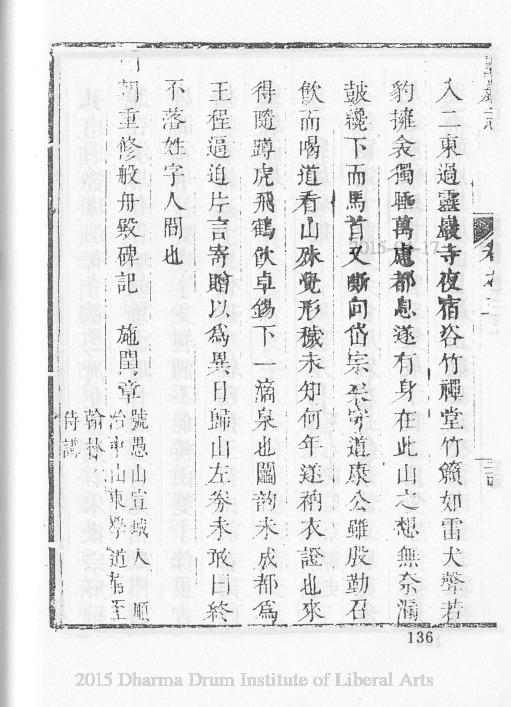 入二東過靈巖寺夜宿谷竹禪堂竹籟如雷犬聲若
豹擁衾獨臥萬慮都息遂有身在此山之想無奈漏
鼓纔下而馬首又斷向岱宗矣守道康公雖殷勤召
飲而喝道看山殊覺形穢未知何年遂衲衣證也來
得隨蹲虎飛鶴飲卓錫下一滴泉也圖韵未成都為
王程逼迫片言寄贈以為異日歸山左券未敢曰終
不落姓字人間也
重修般舟殿碑記 施閏章 號愚山宣城人順
治中山東學道陞至
翰林
侍講
136
2015 Dharma Drum Institute of Liberal Arts